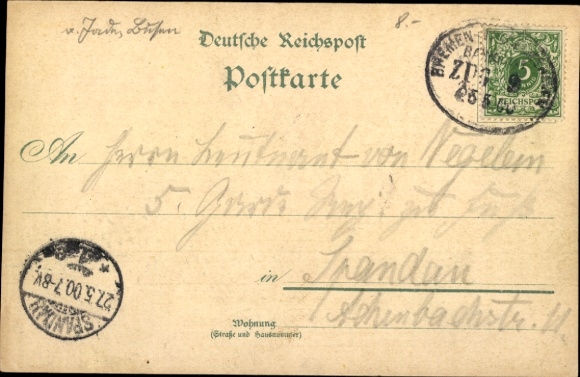 v. Jade Busen
8.-
Deutsche Reichspost
Postkarte
BREMEN
BAHNPOST
ZUG 9
26 5 00
5
REICHSPOST
An Herrn Leutnant von Wegelein
5. Garde Reg. zu Fuß
in Spandau
Achenbachstr. 11
Wohnung
(Straße und Hausnummer)
SPANDAU
27.5.00.7-8V.